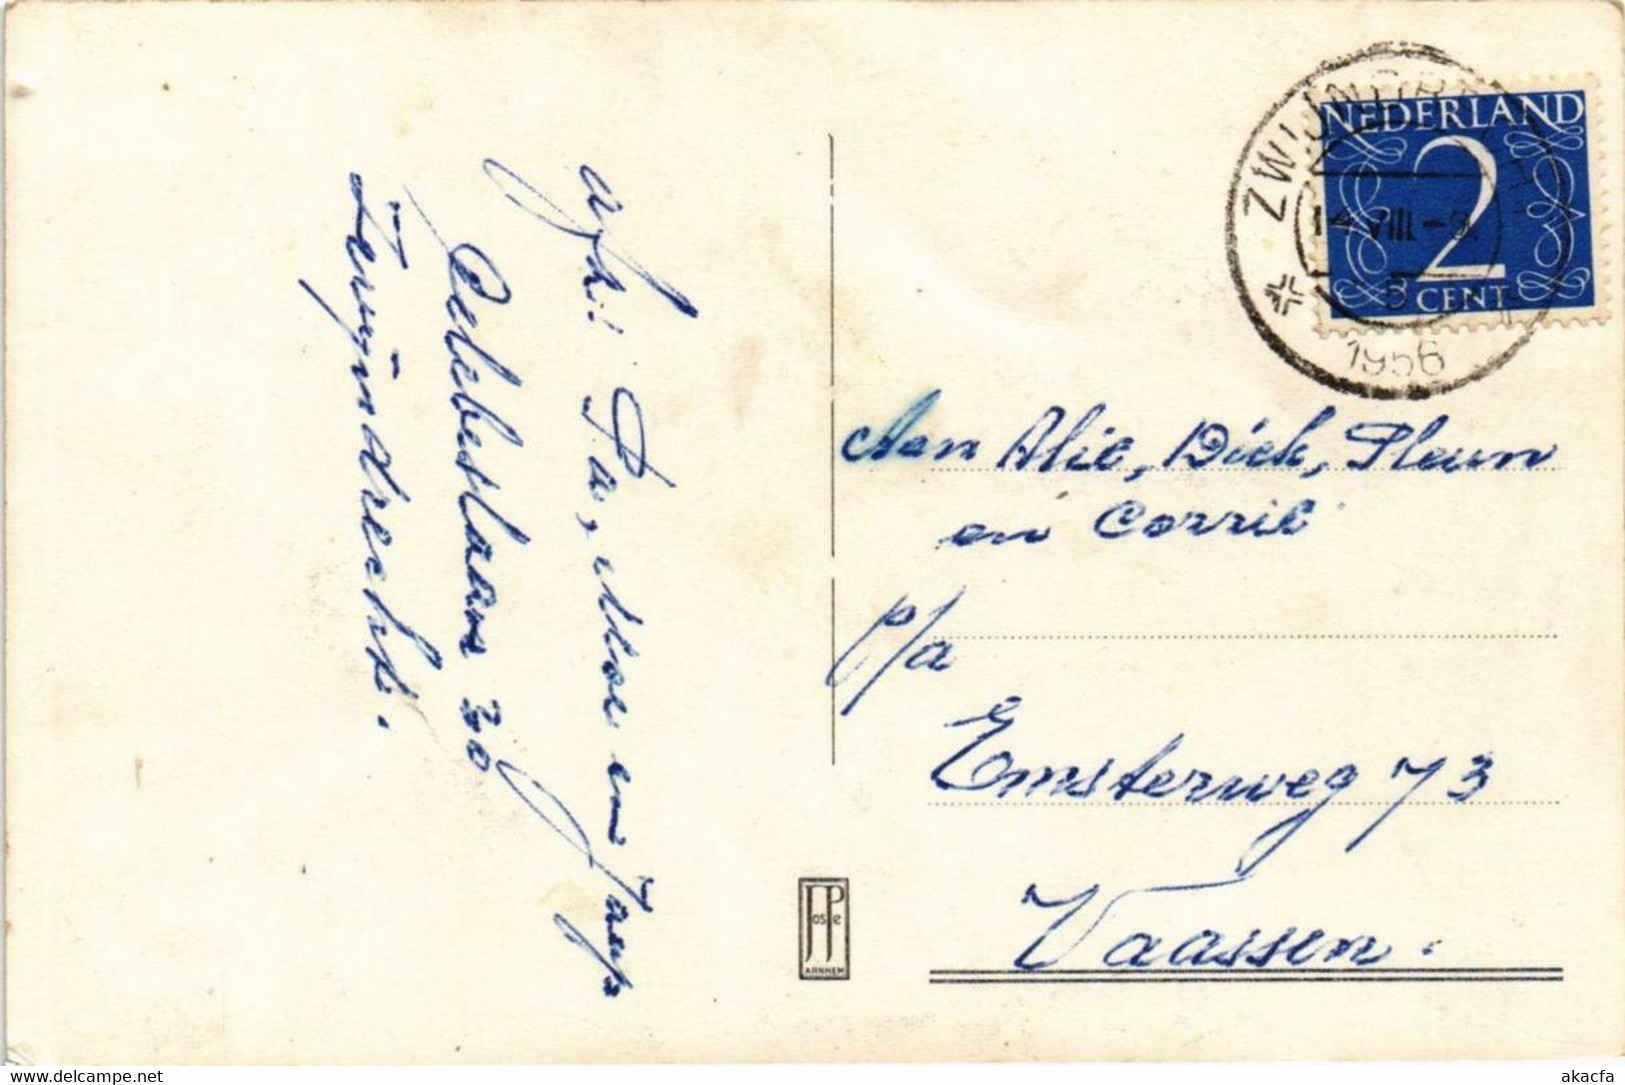 afz: Pa, Moe en Jaap
Celebeslaan 30
Zwijndrecht.
ZWIJNDRECHT
14 VIII - 9.
5
1956
NEDERLAND
2
CENT
Aan Alie, Dick, Pleun
en Corrie
p/a
Emsterweg 73
Vaassen.
JosPe
ARNHEM
delcampe.net
akacfa